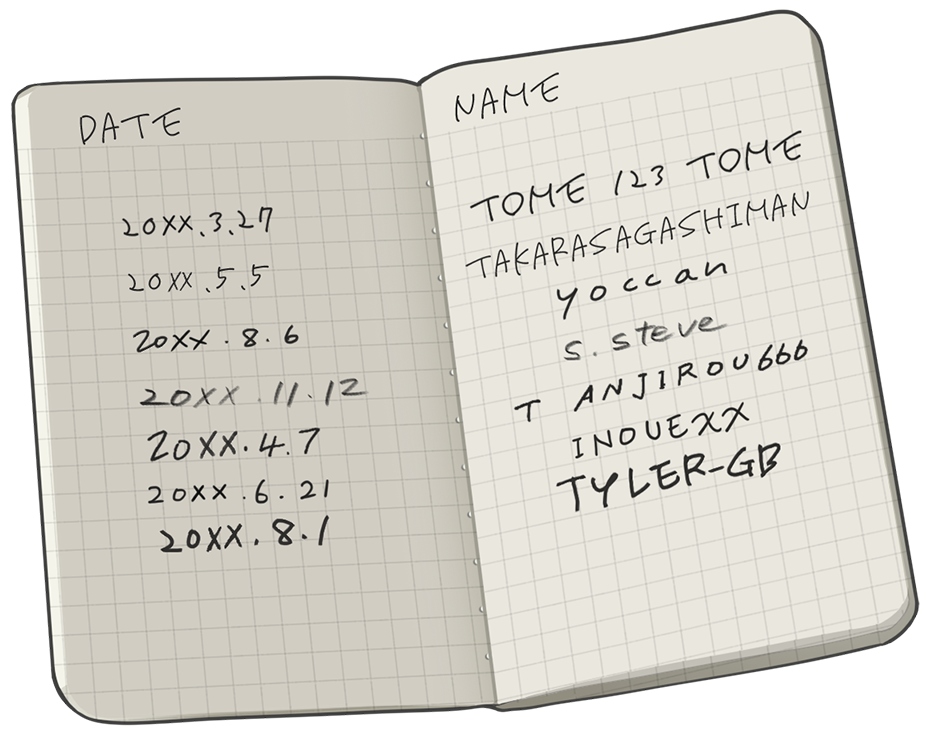 DATE
20XX.3.27
20XX.5.5
20XX.8.6
20XX.11.12
20XX.4.7
20XX.6.21
20XX.8.1
NAME
TOME 123 TOME
TAKARASAGASHIMAN
yoccan
s.steve
T ANJIROU666
INOUEXX
TYLER-GB